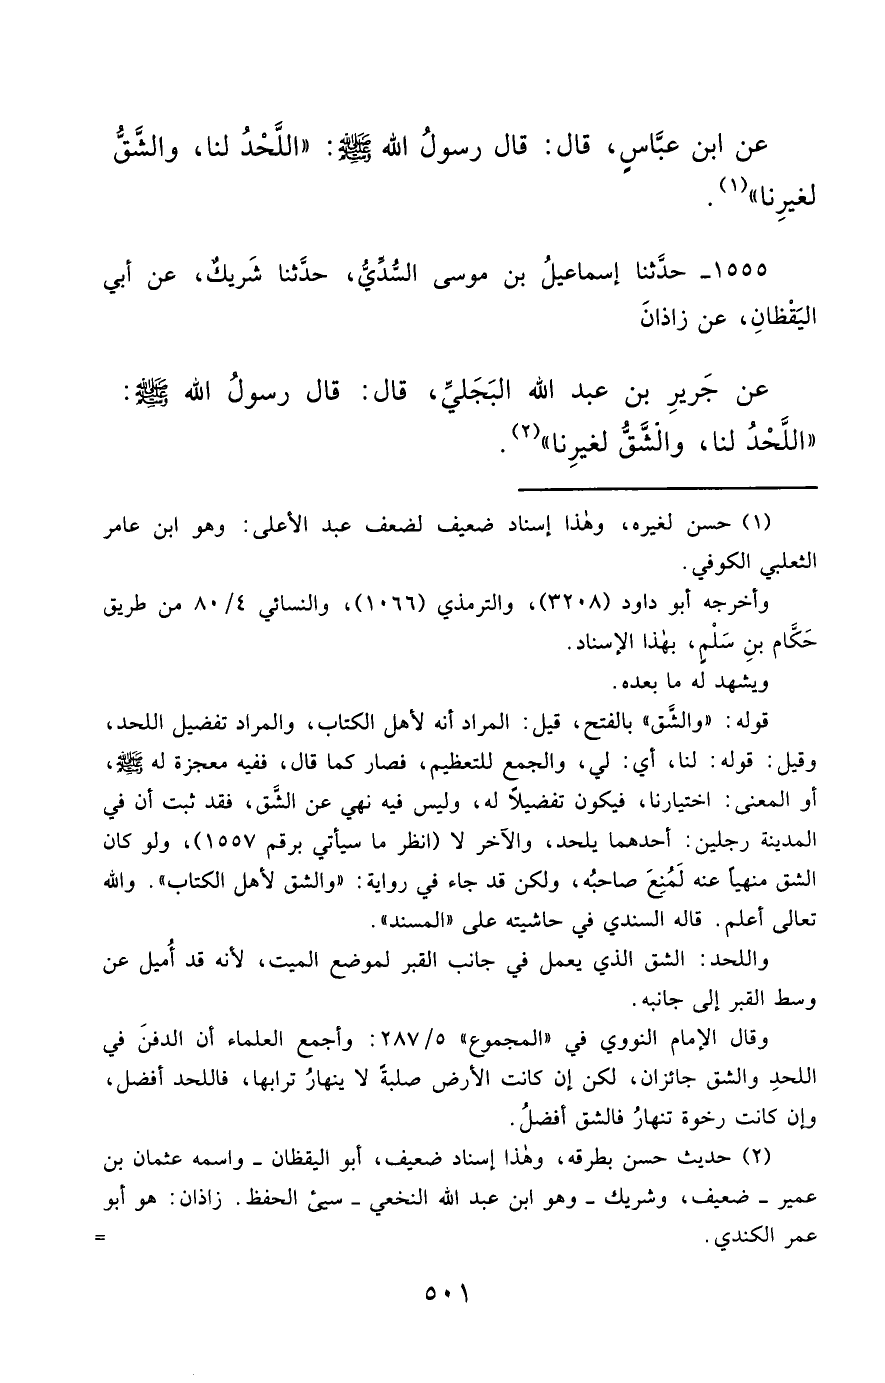 عن ابن عبَّاسٍ، قال: قال رسولُ الله ﷺ: «اللَّحْدُ لنا، والشَّقُّ
لغيرِنا»(١).
١٥٥٥ـ حدَّثنا إسماعيلُ بن موسى السُّدِّيُّ، حدَّثنا شَريكٌ، عن أبي
اليَقْظانِ، عن زاذانَ
عن جَريرِ بن عبد الله البَجَليِّ، قال: قال رسولُ الله ﷺ:
«اللَّحْدُ لنا، والْشَّقُّ لغيرِنا»(٢).
(١) حسن لغيره، وهٰذا إسناد ضعيف لضعف عبد الأعلى: وهو ابن عامر
الثعلبي الكوفي.
وأخرجه أبو داود (٣٢٠٨)، والترمذي (١٠٦٦)، والنسائي ٤/ ٨٠ من طريق
حَكَّام بنِ سَلْمٍ، بهٰذا الإسناد.
ويشهد له ما بعده.
قوله: «والشَّق» بالفتح، قيل: المراد أنه لأهل الكتاب، والمراد تفضيل اللحد،
وقيل: قوله: لنا، أي: لي، والجمع للتعظيم، فصار كما قال، ففيه معجزة له ﷺ،
أو المعنى: اختيارنا، فيكون تفضيلاً له، وليس فيه نهي عن الشَّق، فقد ثبت أن في
المدينة رجلين: أحدهما يلحد، والآخر لا (انظر ما سيأتي برقم ١٥٥٧)، ولو كان
الشق منهياً عنه لَمُنِعَ صاحبُه، ولكن قد جاء في رواية: «والشق لأهل الكتاب». والله
تعالى أعلم. قاله السندي في حاشيته على «المسند».
واللحد: الشق الذي يعمل في جانب القبر لموضع الميت، لأنه قد أُميل عن
وسط القبر إلى جانبه.
وقال الإمام النووي في «المجموع» ٥/ ٢٨٧: وأجمع العلماء أن الدفنَ في
اللحدِ والشق جائزان، لكن إن كانت الأرض صلبةً لا ينهارُ ترابها، فاللحد أفضل،
وإن كانت رخوة تنهارُ فالشق أفضلُ.
(٢) حديث حسن بطرقه، وهٰذا إسناد ضعيف، أبو اليقظان ـ واسمه عثمان بن
عمير ـ ضعيف، وشريك ـ وهو ابن عبد الله النخعي ـ سيئ الحفظ. زاذان: هو أبو
عمر الكندي. =
٥٠١